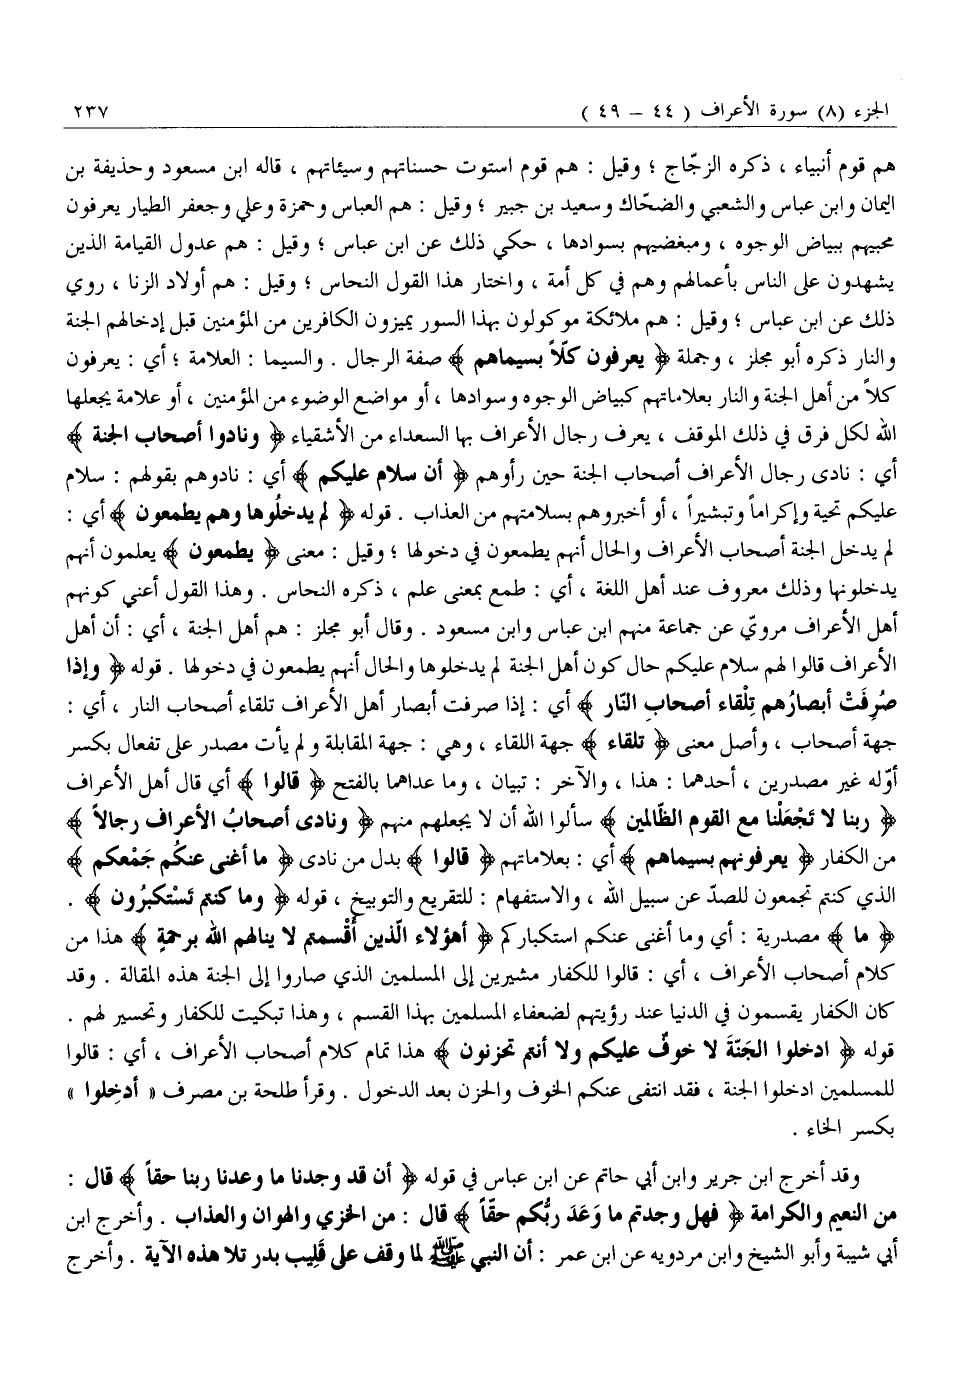 الجزء (٨) سورة الأعراف ( ٤٤ – ٤٩ )
٢٣٧
هم قوم أنبياء ، ذكره الزجّاج ؛ وقيل : هم قوم استوت حسناتهم وسيئاتهم ، قاله ابن مسعود وحذيفة بن
اليمان وابن عباس والشعبي والضحّاك وسعيد بن جبير ؛ وقيل : هم العباس وحمزة وعلي وجعفر الطيار يعرفون
محبيهم ببياض الوجوه ، ومبغضيهم بسوادها ، حكي ذلك عن ابن عباس ؛ وقيل : هم عدول القيامة الذين
يشهدون على الناس بأعمالهم وهم في كل أمة ، واختار هذا القول النحاس ؛ وقيل : هم أولاد الزنا ، روي
ذلك عن ابن عباس ؛ وقيل : هم ملائكة موكولون بهذا السور يميزون الكافرين من المؤمنين قبل إدخالهم الجنة
والنار ذكره أبو مجلز ، وجملة ﴿ يعرفون كلّاً بسيماهم ﴾ صفة الرجال . والسيما : العلامة ؛ أي : يعرفون
كلاً من أهل الجنة والنار بعلاماتهم كبياض الوجوه وسوادها ، أو مواضع الوضوء من المؤمنين ، أو علامة يجعلها
الله لكل فرق في ذلك الموقف ، يعرف رجال الأعراف بها السعداء من الأشقياء ﴿ ونادوا أصحاب الجنة ﴾
أي : نادى رجال الأعراف أصحاب الجنة حين رأوهم ﴿ أن سلام عليكم ﴾ أي : نادوهم بقولهم : سلام
عليكم تحية وإكراماً وتبشيراً ، أو أخبروهم بسلامتهم من العذاب . قوله ﴿ لم يدخلُوها وهم يطمعون ﴾ أي :
لم يدخل الجنة أصحاب الأعراف والحال أنهم يطمعون في دخولها ؛ وقيل : معنى ﴿ يطمعون ﴾ يعلمون أنهم
يدخلونها وذلك معروف عند أهل اللغة ، أي : طمع بمعنى علم ، ذكره النحاس . وهذا القول أعني كونهم
أهل الأعراف مرويّ عن جماعة منهم ابن عباس وابن مسعود . وقال أبو مجلز : هم أهل الجنة ، أي : أن أهل
الأعراف قالوا لهم سلام عليكم حال كون أهل الجنة لم يدخلوها والحال أنهم يطمعون في دخولها . قوله ﴿ وإذا
صُرِفَتْ أبصارُهم تِلْقاء أصحابِ النّار ﴾ أي : إذا صرفت أبصار أهل الأعراف تلقاء أصحاب النار ، أي :
جهة أصحاب ، وأصل معنى ﴿ تلقاء ﴾ جهة اللقاء ، وهي : جهة المقابلة و لم يأت مصدر على تفعال بكسر
أوّله غير مصدرين ، أحدهما : هذا ، والآخر : تبيان ، وما عداهما بالفتح ﴿ قالوا ﴾ أي قال أهل الأعراف
﴿ ربنا لا تَجْعَلْنا مع القوم الظّالمين ﴾ سألوا الله أن لا يجعلهم منهم ﴿ ونادى أصحابُ الأعراف رجالاً ﴾
من الكفار ﴿ يعرفونهم بسيماهم ﴾ أي : بعلاماتهم ﴿ قالوا ﴾ بدل من نادى ﴿ ما أغنى عنكُم جَمْعكم ﴾
الذي كنتم تجمعون للصدّ عن سبيل الله ، والاستفهام : للتقريع والتوبيخ ، قوله ﴿ وما كنتم تَسْتكبرُون ﴾ .
﴿ ما ﴾ مصدرية : أي وما أغنى عنكم استكباركم ﴿ أهؤلاء الّذين أَقْسمتم لا ينالهم الله برحمةٍ ﴾ هذا من
كلام أصحاب الأعراف ، أي : قالوا للكفار مشيرين إلى المسلمين الذي صاروا إلى الجنة هذه المقالة . وقد
كان الكفار يقسمون في الدنيا عند رؤيتهم لضعفاء المسلمين بهذا القسم ، وهذا تبكيت للكفار وتحسير لهم .
قوله ﴿ ادخلوا الجَنّةَ لا خوفٌ عليكم ولا أنتم تحزنون ﴾ هذا تمام كلام أصحاب الأعراف ، أي : قالوا
للمسلمين ادخلوا الجنة ، فقد انتفى عنكم الخوف والحزن بعد الدخول . وقرأ طلحة بن مصرف « أدخِلوا »
بكسر الخاء .
وقد أخرج ابن جرير وابن أبي حاتم عن ابن عباس في قوله ﴿ أن قد وجدنا ما وعدنا ربنا حقاً ﴾ قال :
من النعيم والكرامة ﴿ فهل وجدتم ما وَعَدَ ربُّكم حقّاً ﴾ قال : من الخزي والهوان والعذاب . وأخرج ابن
أبي شيبة وأبو الشيخ وابن مردويه عن ابن عمر : أن النبي ﷺ لما وقف على قَلِيب بدر تلا هذه الآية . وأخرج